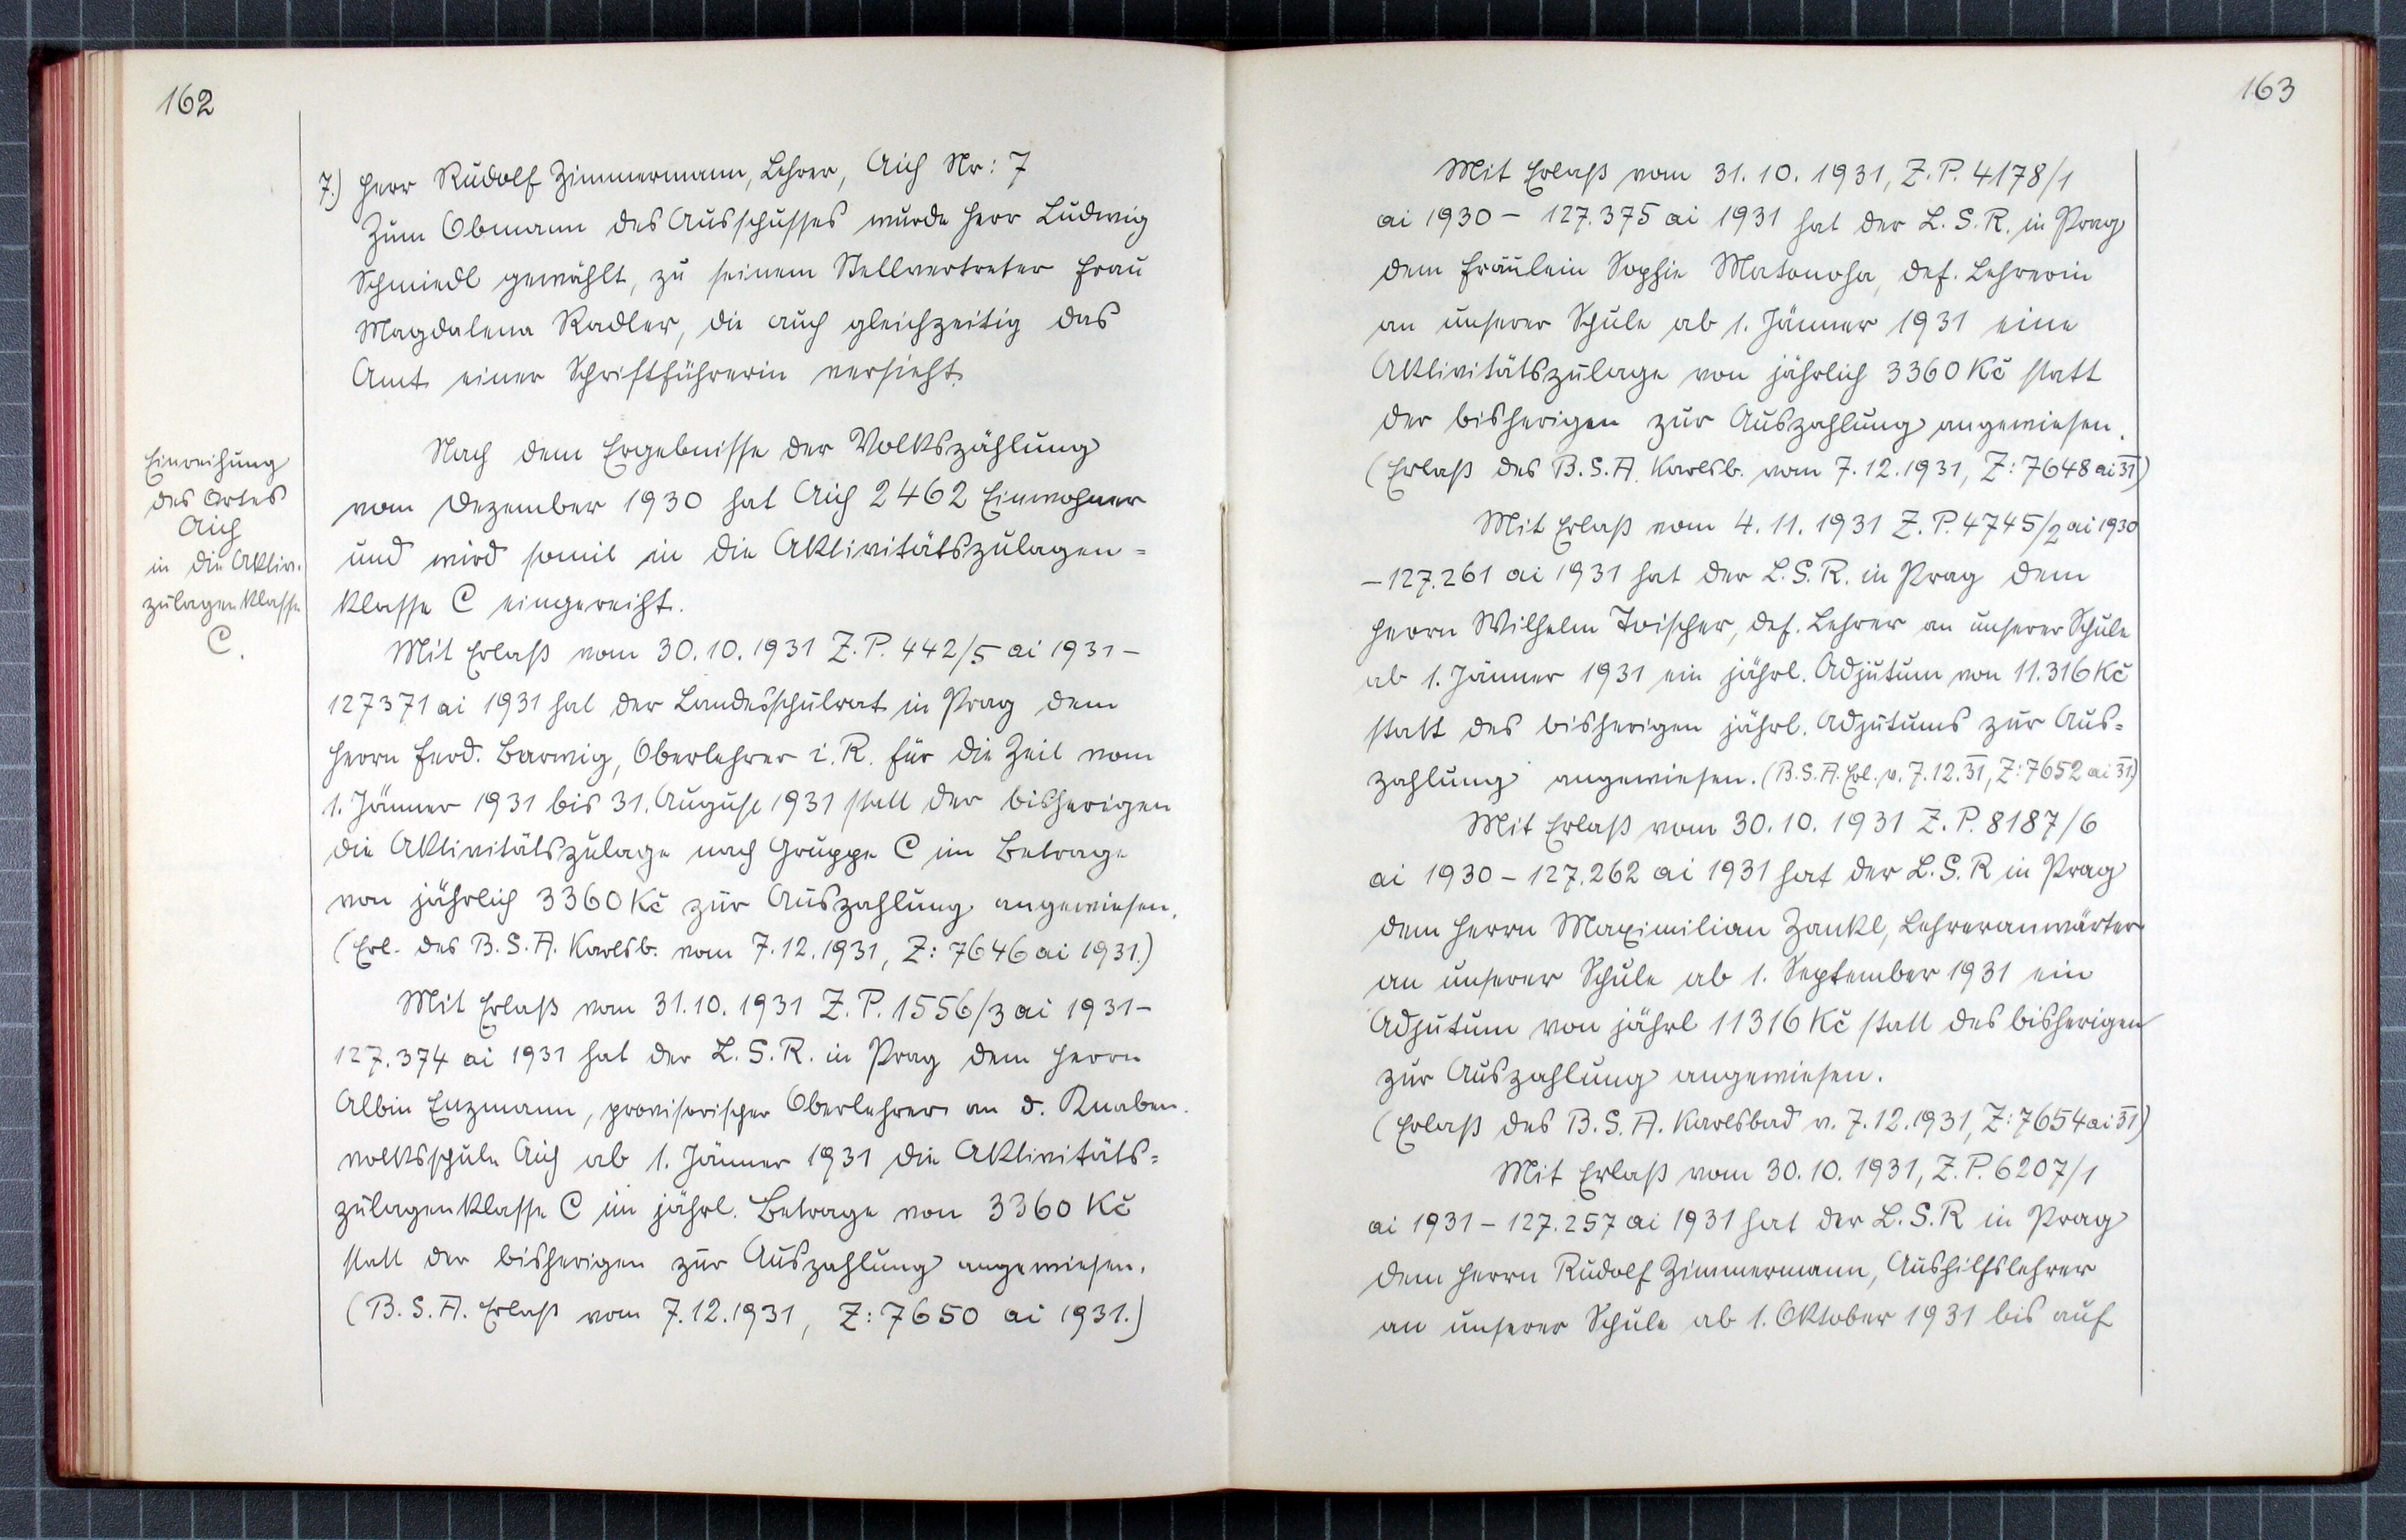 162
7.) Herr Rudolf Zimmermann, Lehrer, Aich Nr: 7
Zum Obmann des Ausschusses wurde Herr Ludwig
Schmiedl gewählt, zu seinem Stellvertreter Frau
Magdalena Radler, die auch gleichzeitig das
Amt einer Schriftführerin versieht.
Einreihung
des Ortes
Aich
in die Aktiv.
zulagenklasse
C.
Nach dem Ergebnisse der Volkszählung
vom Dezember 1930 hat Aich 2462 Einwohner
und wird somit in die Aktivitätszulagen=
klasse C eingereiht.
Mit Erlaß vom 30.10.1931 Z.P. 442/5 ai 1931 -
127371 ai 1931 hat der Landesschulrat in Prag dem
Herrn Ferd. Barwig, Oberlehrer i. R. für die Zeit vom
1. Jänner 1931 bis 31. August 1931 statt der bisherigen
die Aktivitätszulage nach Gruppe C im Betrage
von jährlich 3360 Kč zur Auszahlung angewiesen.
(Erl. des B.S.A. Karlsb. vom 7.12.1931, Z: 7646 ai 1931.)
Mit Erlaß vom 31.10.1931 Z.P. 1556/3 ai 1931 -
127.374 ai 1931 hat der L.S.R. in Prag dem Herrn
Albin Enzmann, provisorischer Oberlehrer an d. Knaben.
volksschule Aich ab 1. Jänner 1931 die Aktivitäts=
zulagenklasse C im jährl. Betrage von 3360 Kč
statt der bisherigen zur Auszahlung angewiesen.
(B.S.A. Erlaß vom 7.12.1931, Z: 7650 ai 1931.)
163
Mit Erlaß vom 31.10.1931, Z.P. 4178/1
ai 1930 - 127.375 ai 1931 hat der L.S.R. in Prag
dem Fräulein Sophie Matonoha, def. Lehrerin
an unserer Schule ab 1. Jänner 1931 eine
Aktivitätszulage von jährlich 3360 Kč statt
der bisherigen zur Auszahlung angewiesen.
(Erlaß des B.S.A. Karlsb. vom 7.12.1931, Z: 7648 ai 31)
Mit Erlaß vom 4.11.1931 Z.P. 4745/2 ai 1930
- 127.261 ai 1931 hat der L.S.R. in Prag dem
Herrn Wilhelm Toischer, def. Lehrer an unserer Schule
ab 1. Jänner 1931 ein jährl. Adjutum von 11.316 Kč
statt des bisherigen jährl. Adjutums zur Aus=
zahlung angewiesen. (B.S.A. Erl. v. 7.12.31, Z: 7652 ai 31)
Mit Erlaß vom 30.10.1931 Z.P. 8187/6
ai 1930 - 127.262 ai 1931 hat der L.S.R in Prag
dem Herrn Maximilian Zankl, Lehreranwärter
an unserer Schule ab 1. September 1931 ein
Adjutum von jährl 11316 Kč statt des bisherigen
zur Auszahlung angewiesen.
(Erlaß des B.S.A. Karlsbad v. 7.12.1931, Z: 7654 ai 31)
Mit Erlaß vom 30.10.1931, Z.P. 6207/1
ai 1931 - 127.257 ai 1931 hat der L.S.R in Prag
dem Herrn Rudolf Zimmermann, Aushilfslehrer
an unserer Schule ab 1. Oktober 1931 bis auf